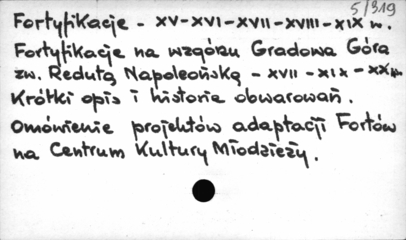 5/319
Fortyfikacje - XV-XVI-XVII-XVIII-XIX w.
Fortyfikacje na wzgórzu Gradowa Góra
zw. Redutą Napoleońską - XVII - XIX - XX w.
Krótki opis i historia obwarowań.
Omówienie projektów adaptacji Fortów
na Centrum Kultury Młodzieży.